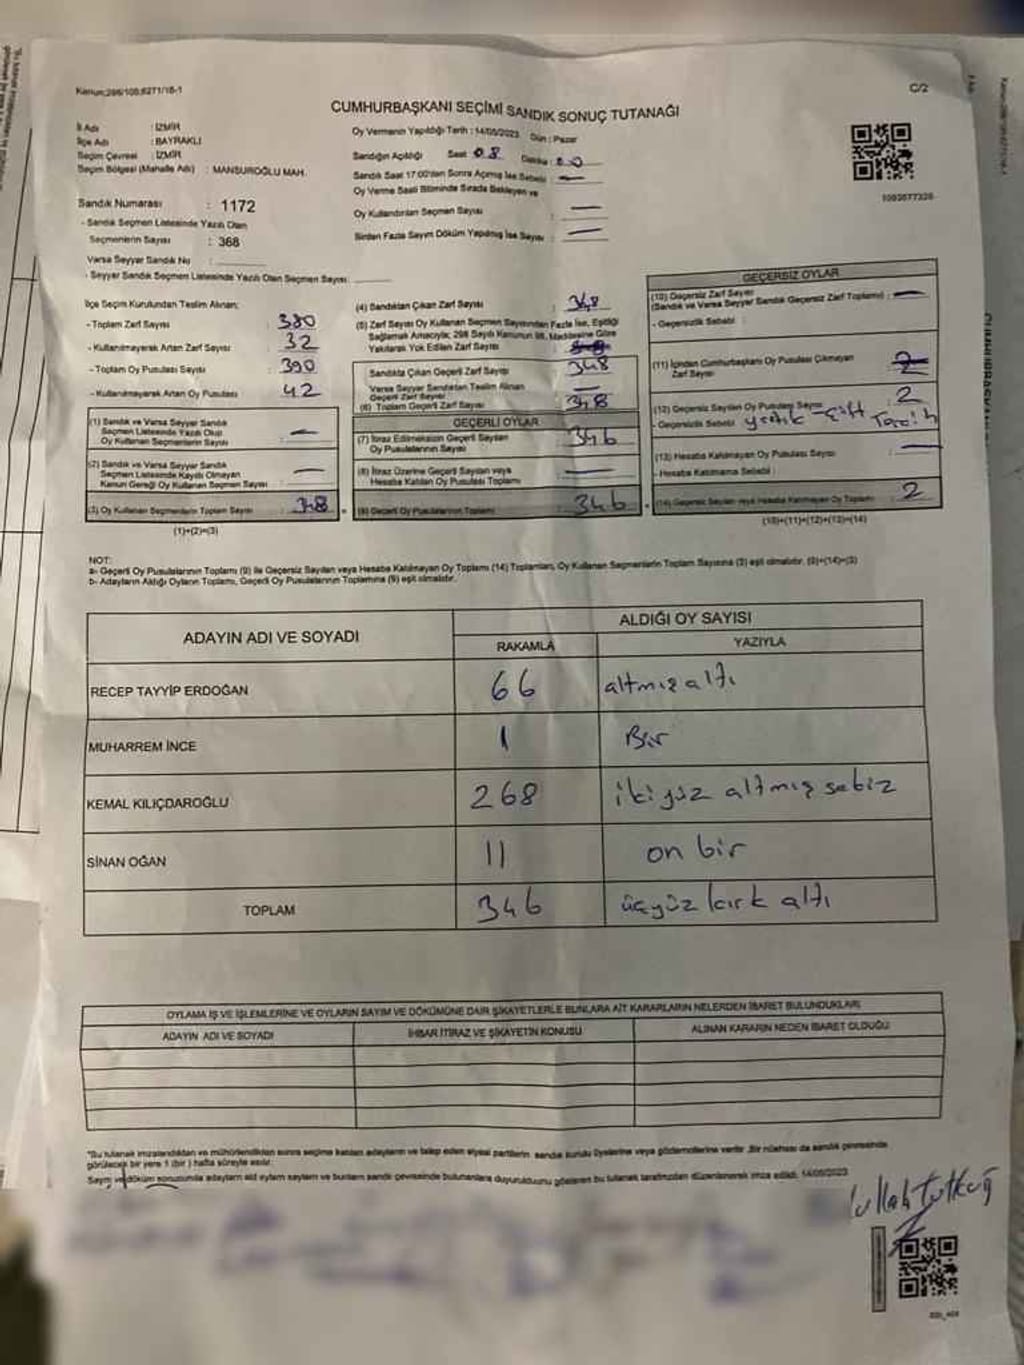 Kanun;298/108;6271/18-1
C/2
CUMHURBAŞKANI SEÇİMİ SANDIK SONUÇ TUTANAĞI
İl Adı : İZMİR
İlçe Adı : BAYRAKLI
Seçim Çevresi : İZMİR
Seçim Bölgesi (Mahalle Adı) : MANSUROĞLU MAH.
Sandık Numarası : 1172
- Sandık Seçmen Listesinde Yazılı Olan
Seçmenlerin Sayısı : 368
Varsa Seyyar Sandık No :
- Seyyar Sandık Seçmen Listesinde Yazılı Olan Seçmen Sayısı :
Oy Vermenin Yapıldığı Tarih : 14/05/2023 Gün : Pazar
Sandığın Açıldığı Saat 08 Dakika : 00
Sandık Saat 17:00'dan Sonra Açılmış İse Sebebi : —
Oy Verme Saati Bitiminde Sırada Bekleyen ve
Oy Kullandırılan Seçmen Sayısı : —
Birden Fazla Sayım Döküm Yapılmış İse Sayısı : —
1093677320
İlçe Seçim Kurulundan Teslim Alınan:
- Toplam Zarf Sayısı : 380
- Kullanılmayarak Artan Zarf Sayısı : 32
- Toplam Oy Pusulası Sayısı : 390
- Kullanılmayarak Artan Oy Pusulası : 42
(1) Sandık ve Varsa Seyyar Sandık
Seçmen Listesinde Yazılı Olup
Oy Kullanan Seçmenlerin Sayısı : —
(2) Sandık ve Varsa Seyyar Sandık
Seçmen Listesinde Kayıtlı Olmayan
Kanun Gereği Oy Kullanan Seçmen Sayısı : —
(3) Oy Kullanan Seçmenlerin Toplam Sayısı : 348
(1)+(2)=(3)
(4) Sandıktan Çıkan Zarf Sayısı : 348
(5) Zarf Sayısı Oy Kullanan Seçmen Sayısından Fazla İse, Eşitliği
Sağlamak Amacıyla; 298 Sayılı Kanunun 98. Maddesine Göre
Yakılarak Yok Edilen Zarf Sayısı
Sandıkta Çıkan Geçerli Zarf Sayısı : 348
Varsa Seyyar Sandıktan Teslim Alınan
Geçerli Zarf Sayısı : —
(6) Toplam Geçerli Zarf Sayısı : 348
GEÇERLİ OYLAR
(7) İtiraz Edilmeksizin Geçerli Sayılan
Oy Pusulalarının Sayısı : 346
(8) İtiraz Üzerine Geçerli Sayılan veya
Hesaba Katılan Oy Pusulası Toplamı : —
(9) Geçerli Oy Pusulalarının Toplamı : 346
GEÇERSİZ OYLAR
(10) Geçersiz Zarf Sayısı
(Sandık ve Varsa Seyyar Sandık Geçersiz Zarf Toplamı) : —
- Geçersizlik Sebebi :
(11) İçinden Cumhurbaşkanı Oy Pusulası Çıkmayan
Zarf Sayısı
(12) Geçersiz Sayılan Oy Pusulası Sayısı : 2
- Geçersizlik Sebebi
(13) Hesaba Katılmayan Oy Pusulası Sayısı : —
- Hesaba Katılmama Sebebi :
(14) Geçersiz Sayılan veya Hesaba Katılmayan Oy Toplamı : 2
(10)+(11)+(12)+(13)=(14)
NOT:
a- Geçerli Oy Pusulalarının Toplamı (9) ile Geçersiz Sayılan veya Hesaba Katılmayan Oy Toplamı (14) Toplamları, Oy Kullanan Seçmenlerin Toplam Sayısına (3) eşit olmalıdır. (9)+(14)=(3)
b- Adayların Aldığı Oyların Toplamı, Geçerli Oy Pusulalarının Toplamına (9) eşit olmalıdır.
ADAYIN ADI VE SOYADI ALDIĞI OY SAYISI
RAKAMLA YAZIYLA
RECEP TAYYİP ERDOĞAN 66 altmış altı
MUHARREM İNCE 1 Bir
KEMAL KILIÇDAROĞLU 268 iki yüz altmış sekiz
SİNAN OĞAN 11 on bir
TOPLAM 346 üçyüz kırk altı
OYLAMA İŞ VE İŞLEMLERİNE VE OYLARIN SAYIM VE DÖKÜMÜNE DAİR ŞİKAYETLERLE BUNLARA AİT KARARLARIN NELERDEN İBARET BULUNDUKLARI
ADAYIN ADI VE SOYADI İHBAR İTİRAZ VE ŞİKAYETİN KONUSU ALINAN KARARIN NEDEN İBARET OLDUĞU
*Bu tutanak imzalandıktan ve mühürlendikten sonra seçime katılan adayların ve talep eden siyasi partilerin sandık kurulu üyelerine veya gözlemcilerine verilir. Bir nüshası da sandık çevresinde
görülecek bir yere 1 (bir) hafta süreyle asılır.
Sayım ve döküm sonucunda adayların aldığı oyların sayısını ve bunların sandık çevresinde bulunanlara duyurulduğunu gösteren bu tutanak tarafımızdan düzenlenerek imza edildi. 14/05/2023